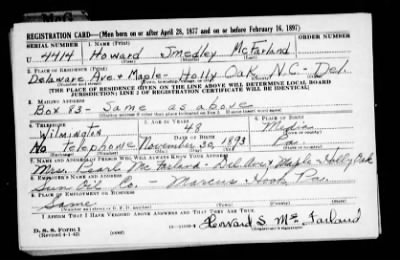 REGISTRATION CARD—(Men born on or after April 28, 1877 and on or before February 16, 1897)
SERIAL NUMBER 1. NAME (Print) ORDER NUMBER
U 4414 Howard Smedley McFarland
2. PLACE OF RESIDENCE (Print)
Delaware Ave. & Maple - Holly Oak N.C. - Del.
[THE PLACE OF RESIDENCE GIVEN ON THE LINE ABOVE WILL DETERMINE LOCAL BOARD
JURISDICTION; LINE 2 OF REGISTRATION CERTIFICATE WILL BE IDENTICAL]
3. MAILING ADDRESS
Box 83 - Same as above
4. TELEPHONE 5. AGE IN YEARS 6. PLACE OF BIRTH
Wilmington 48 Media
DATE OF BIRTH
No Telephone November 30, 1893 Pa.
7. NAME AND ADDRESS OF PERSON WHO WILL ALWAYS KNOW YOUR ADDRESS
Mrs. Pearl McFarland - Del. Ave. & Maple - Holly Oak
8. EMPLOYER'S NAME AND ADDRESS
Sun Oil Co. - Marcus Hook Pa.
9. PLACE OF EMPLOYMENT OR BUSINESS
Same
I AFFIRM THAT I HAVE VERIFIED ABOVE ANSWERS AND THAT THEY ARE TRUE.
D. S. S. Form 1
(Revised 4-1-42) (over) Howard S. McFarland